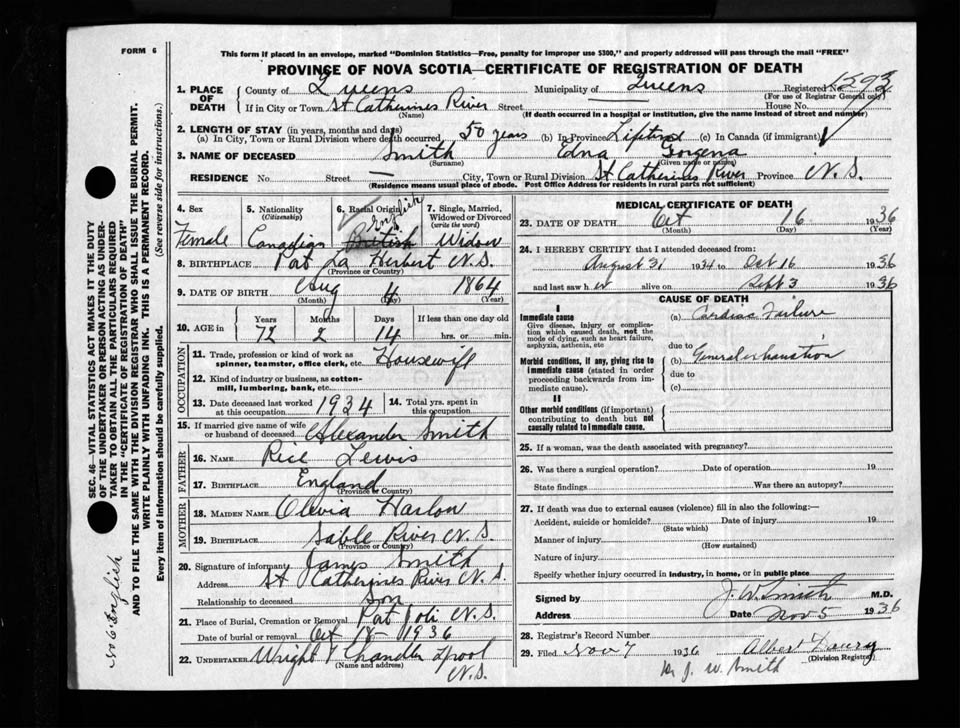 FORM 6
This form if placed in an envelope, marked "Dominion Statistics—Free, penalty for improper use $300," and properly addressed will pass through the mail "FREE"
PROVINCE OF NOVA SCOTIA—CERTIFICATE OF REGISTRATION OF DEATH
1. PLACE OF DEATH
County of Queens Municipality of Queens Registered No. 1592
(For use of Registrar General only)
If in City or Town St Catherines River Street House No.
(Name) (If death occurred in a hospital or institution, give the name instead of street and number)
2. LENGTH OF STAY (in years, months and days)
(a) In City, Town or Rural Division where death occurred 50 years (b) In Province Lifetime (c) In Canada (if immigrant)
3. NAME OF DECEASED Smith Edna Gorgena
(Surname) (Given name or names)
RESIDENCE No. Street — City, Town or Rural Division St Catherines River Province N.S.
(Residence means usual place of abode. Post Office Address for residents in rural parts not sufficient)
4. Sex Female
5. Nationality (Citizenship) Canadian
6. Racial Origin English British
7. Single, Married, Widowed or Divorced (write the word) Widow
8. BIRTHPLACE Port La Herbert N.S.
(Province or Country)
9. DATE OF BIRTH Aug 4 1864
(Month) (Day) (Year)
10. AGE in Years Months Days If less than one day old
72 2 14 hrs. or min.
OCCUPATION
11. Trade, profession or kind of work as spinner, teamster, office clerk, etc. Housewife
12. Kind of industry or business, as cotton-mill, lumbering, bank, etc.
13. Date deceased last worked at this occupation 1934
14. Total yrs. spent in this occupation
15. If married give name of wife or husband of deceased Alexander Smith
FATHER
16. NAME Rice Lewis
17. BIRTHPLACE England
(Province or Country)
MOTHER
18. MAIDEN NAME Olivia Harlow
19. BIRTHPLACE Sable River N.S.
(Province or Country)
20. Signature of informant James Smith
Address St Catherines River N.S.
Relationship to deceased Son
21. Place of Burial, Cremation or Removal Port Joli N.S.
Date of burial or removal Oct 18 1936
22. UNDERTAKER Wright & Chandler Lpool
(Name and address) N.S.
MEDICAL CERTIFICATE OF DEATH
23. DATE OF DEATH Oct 16 1936
(Month) (Day) (Year)
24. I HEREBY CERTIFY that I attended deceased from:
August 31 1934 to Oct 16 1936
and last saw her alive on Sept 3 1936
CAUSE OF DEATH
I
Immediate cause
Give disease, injury or complication which caused death, not the mode of dying, such as heart failure, asphyxia, asthenia, etc
(a) Cardiac Failure
due to
Morbid conditions, if any, giving rise to immediate cause (stated in order proceeding backwards from immediate cause).
(b) General exhaustion
due to
(c)
II
Other morbid conditions (if important) contributing to death but not causally related to immediate cause.
25. If a woman, was the death associated with pregnancy?
26. Was there a surgical operation? Date of operation 19
State findings Was there an autopsy?
27. If death was due to external causes (violence) fill in also the following:—
Accident, suicide or homicide? Date of injury 19
(State which)
Manner of injury
(How sustained)
Nature of injury
Specify whether injury occurred in industry, in home, or in public place
Signed by J. W. Smith M.D.
Address Date Nov 5 1936
28. Registrar's Record Number
29. Filed Nov 7 1936 Albert
(Division Registrar)
Dr J. W. Smith
SEC. 46—VITAL STATISTICS ACT MAKES IT THE DUTY
OF THE UNDERTAKER OR PERSON ACTING AS UNDER-
TAKER TO OBTAIN ALL THE PARTICULARS REQUIRED
IN THE "CERTIFICATE OF REGISTRATION OF DEATH"
AND TO FILE THE SAME WITH THE DIVISION REGISTRAR WHO SHALL ISSUE THE BURIAL PERMIT.
WRITE PLAINLY WITH UNFADING INK. THIS IS A PERMANENT RECORD.
Every item of information should be carefully supplied. (See reverse side for instructions.)
No 6 English